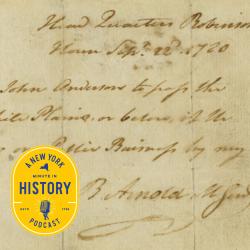 Head Quarters Robinson
House Sepr. 22d. 1780
John Anderson to pass the
White Plains, or below, if He
on Public Business by my
B. Arnold M Genl
A NEW YORK
MINUTE IN
HISTORY
PODCAST